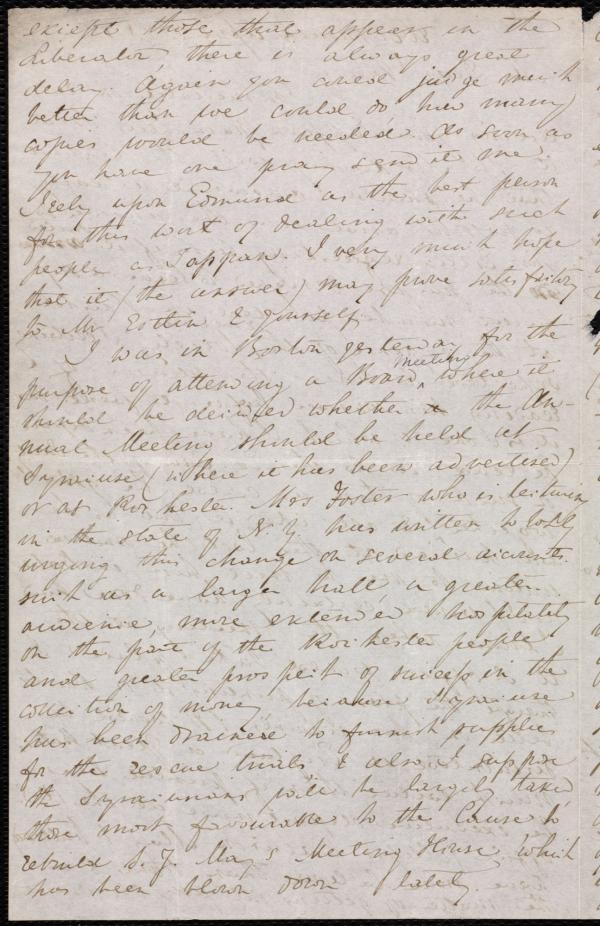 except those that appear in the
Liberator there is always great
delay. Again you could judge much
better than we could do, how many
copies would be needed. As soon as
you have one pray send it me.
I rely upon Edmund as the best person
for this sort of dealing with such
people as Tappan. I very much hope
that it (the answer) may prove satisfactory
to Mr. Estlin & yourself.
I was in Boston yesterday for the
purpose of attending a Board meeting where it
should be decided whether the An-
nual Meeting should be held at
Syracuse (where it has been advertised)
or at Rochester. Mrs Foster who is lecturing
in the state of N. Y. has written to
urging this change on several accounts
such as a larger hall a greater
audience, more extended hospitality
on the part of the Rochester people
and greater prospect of success in the
collection of money, because Syracuse
has been drained to furnish supplies
for the rescue trials & also I suppose
the Syracusans will be largely taxed
those most favourable to the Cause to
rebuild S. J. May's Meeting House, which
has been blown down lately.